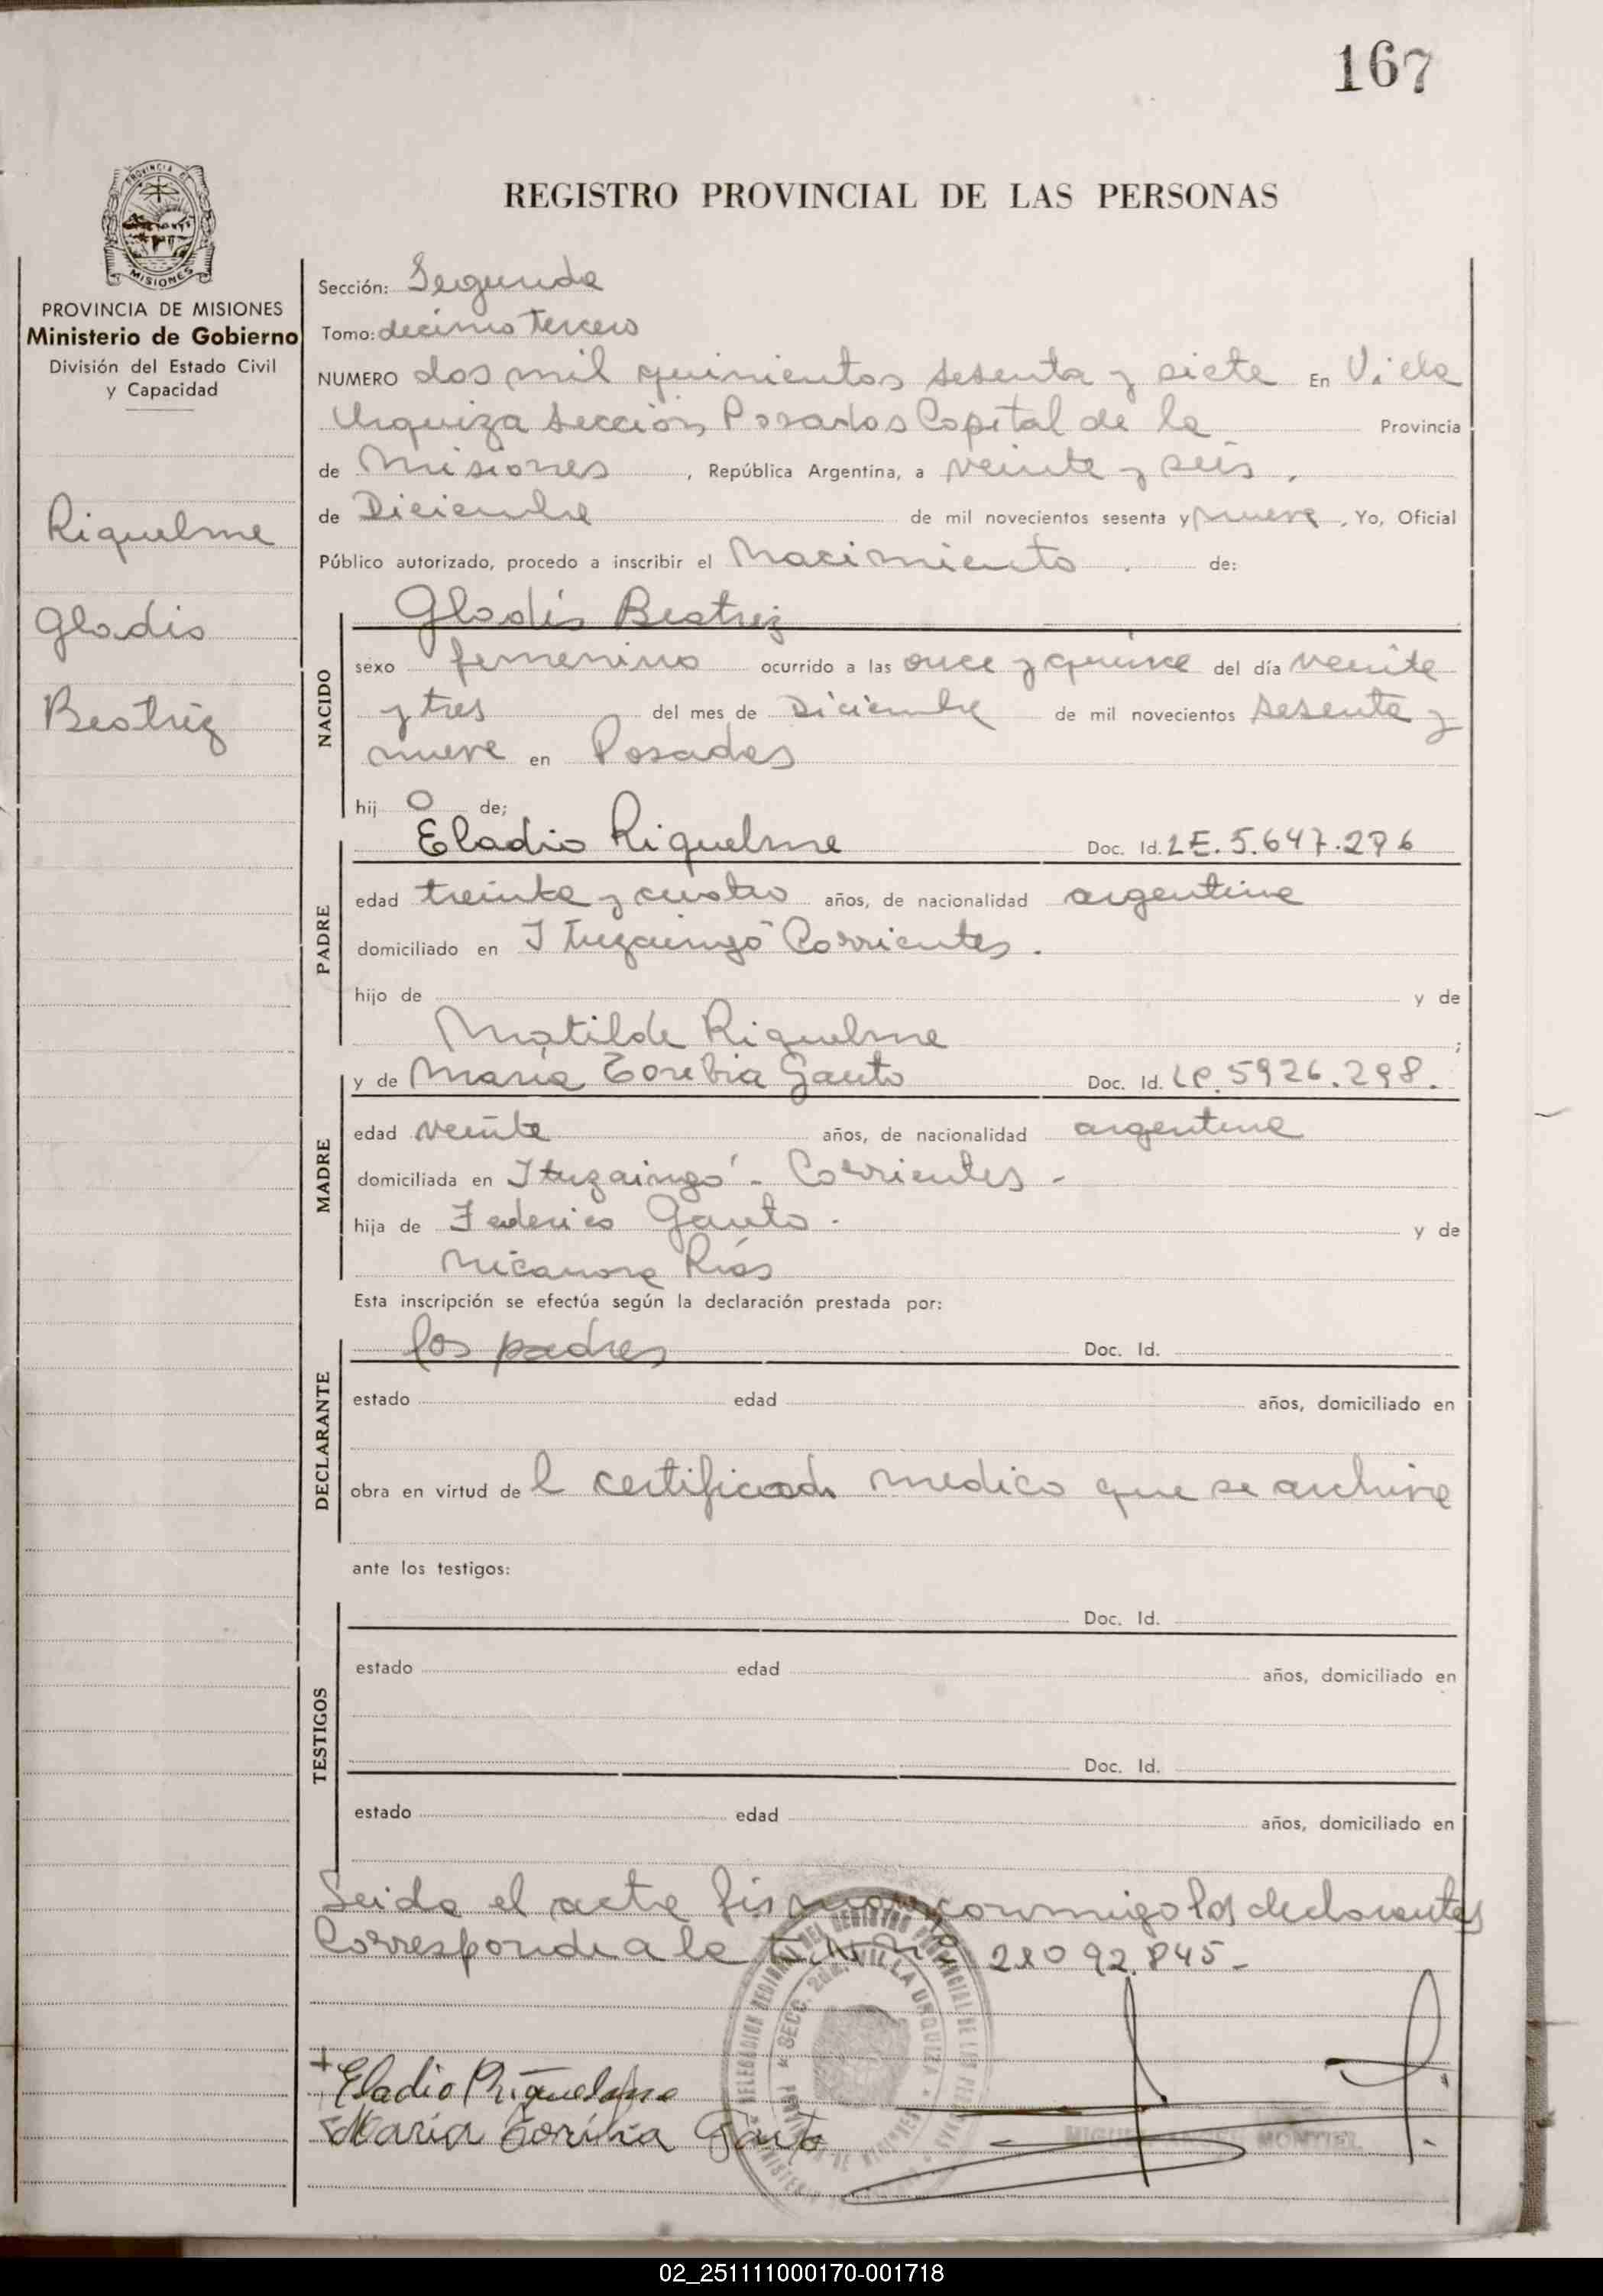 167
PROVINCIA DE MISIONES
REGISTRO PROVINCIAL DE LAS PERSONAS
PROVINCIA DE MISIONES
Ministerio de Gobierno
División del Estado Civil
y Capacidad
Riquelme
Gladis
Beatriz
Sección: Segunda
Tomo: decimo tercero
NUMERO dos mil quinientos sesenta y siete En Villa
Urquiza Sección Posadas Capital de la Provincia
de Misiones, República Argentina, a veinte y seis,
de Diciembre de mil novecientos sesenta y nueve, Yo, Oficial
Público autorizado, procedo a inscribir el Nacimiento. de:
NACIDO
Gladis Beatriz
sexo femenino ocurrido a las once y quince del día veinte
y tres del mes de Diciembre de mil novecientos sesenta y
nueve en Posadas
hij a de;
PADRE
Eladio Riquelme Doc. Id. LE. 5.647.276
edad treinta y cuatro años, de nacionalidad argentina
domiciliado en Ituzaingó Corrientes.
hijo de y de
Matilde Riquelme ;
MADRE
y de María Toribia Gauto Doc. Id. LC. 5926.298.
edad veinte años, de nacionalidad argentina
domiciliada en Ituzaingó - Corrientes -
hija de Federico Gauto. y de
Nicanora Ríos
Esta inscripción se efectúa según la declaración prestada por:
DECLARANTE
los padres Doc. Id.
estado edad años, domiciliado en
obra en virtud de l certificado medico que se archiva
ante los testigos:
TESTIGOS
Doc. Id.
estado edad años, domiciliado en
Doc. Id.
estado edad años, domiciliado en
Leida el acta firman conmigo los declarantes
Corresponde a la 21092.845-
SECC. 2da. VILLA URQUIZA
Eladio Riquelme
María Toribia Gauto
MONTIEL
02_251111000170-001718